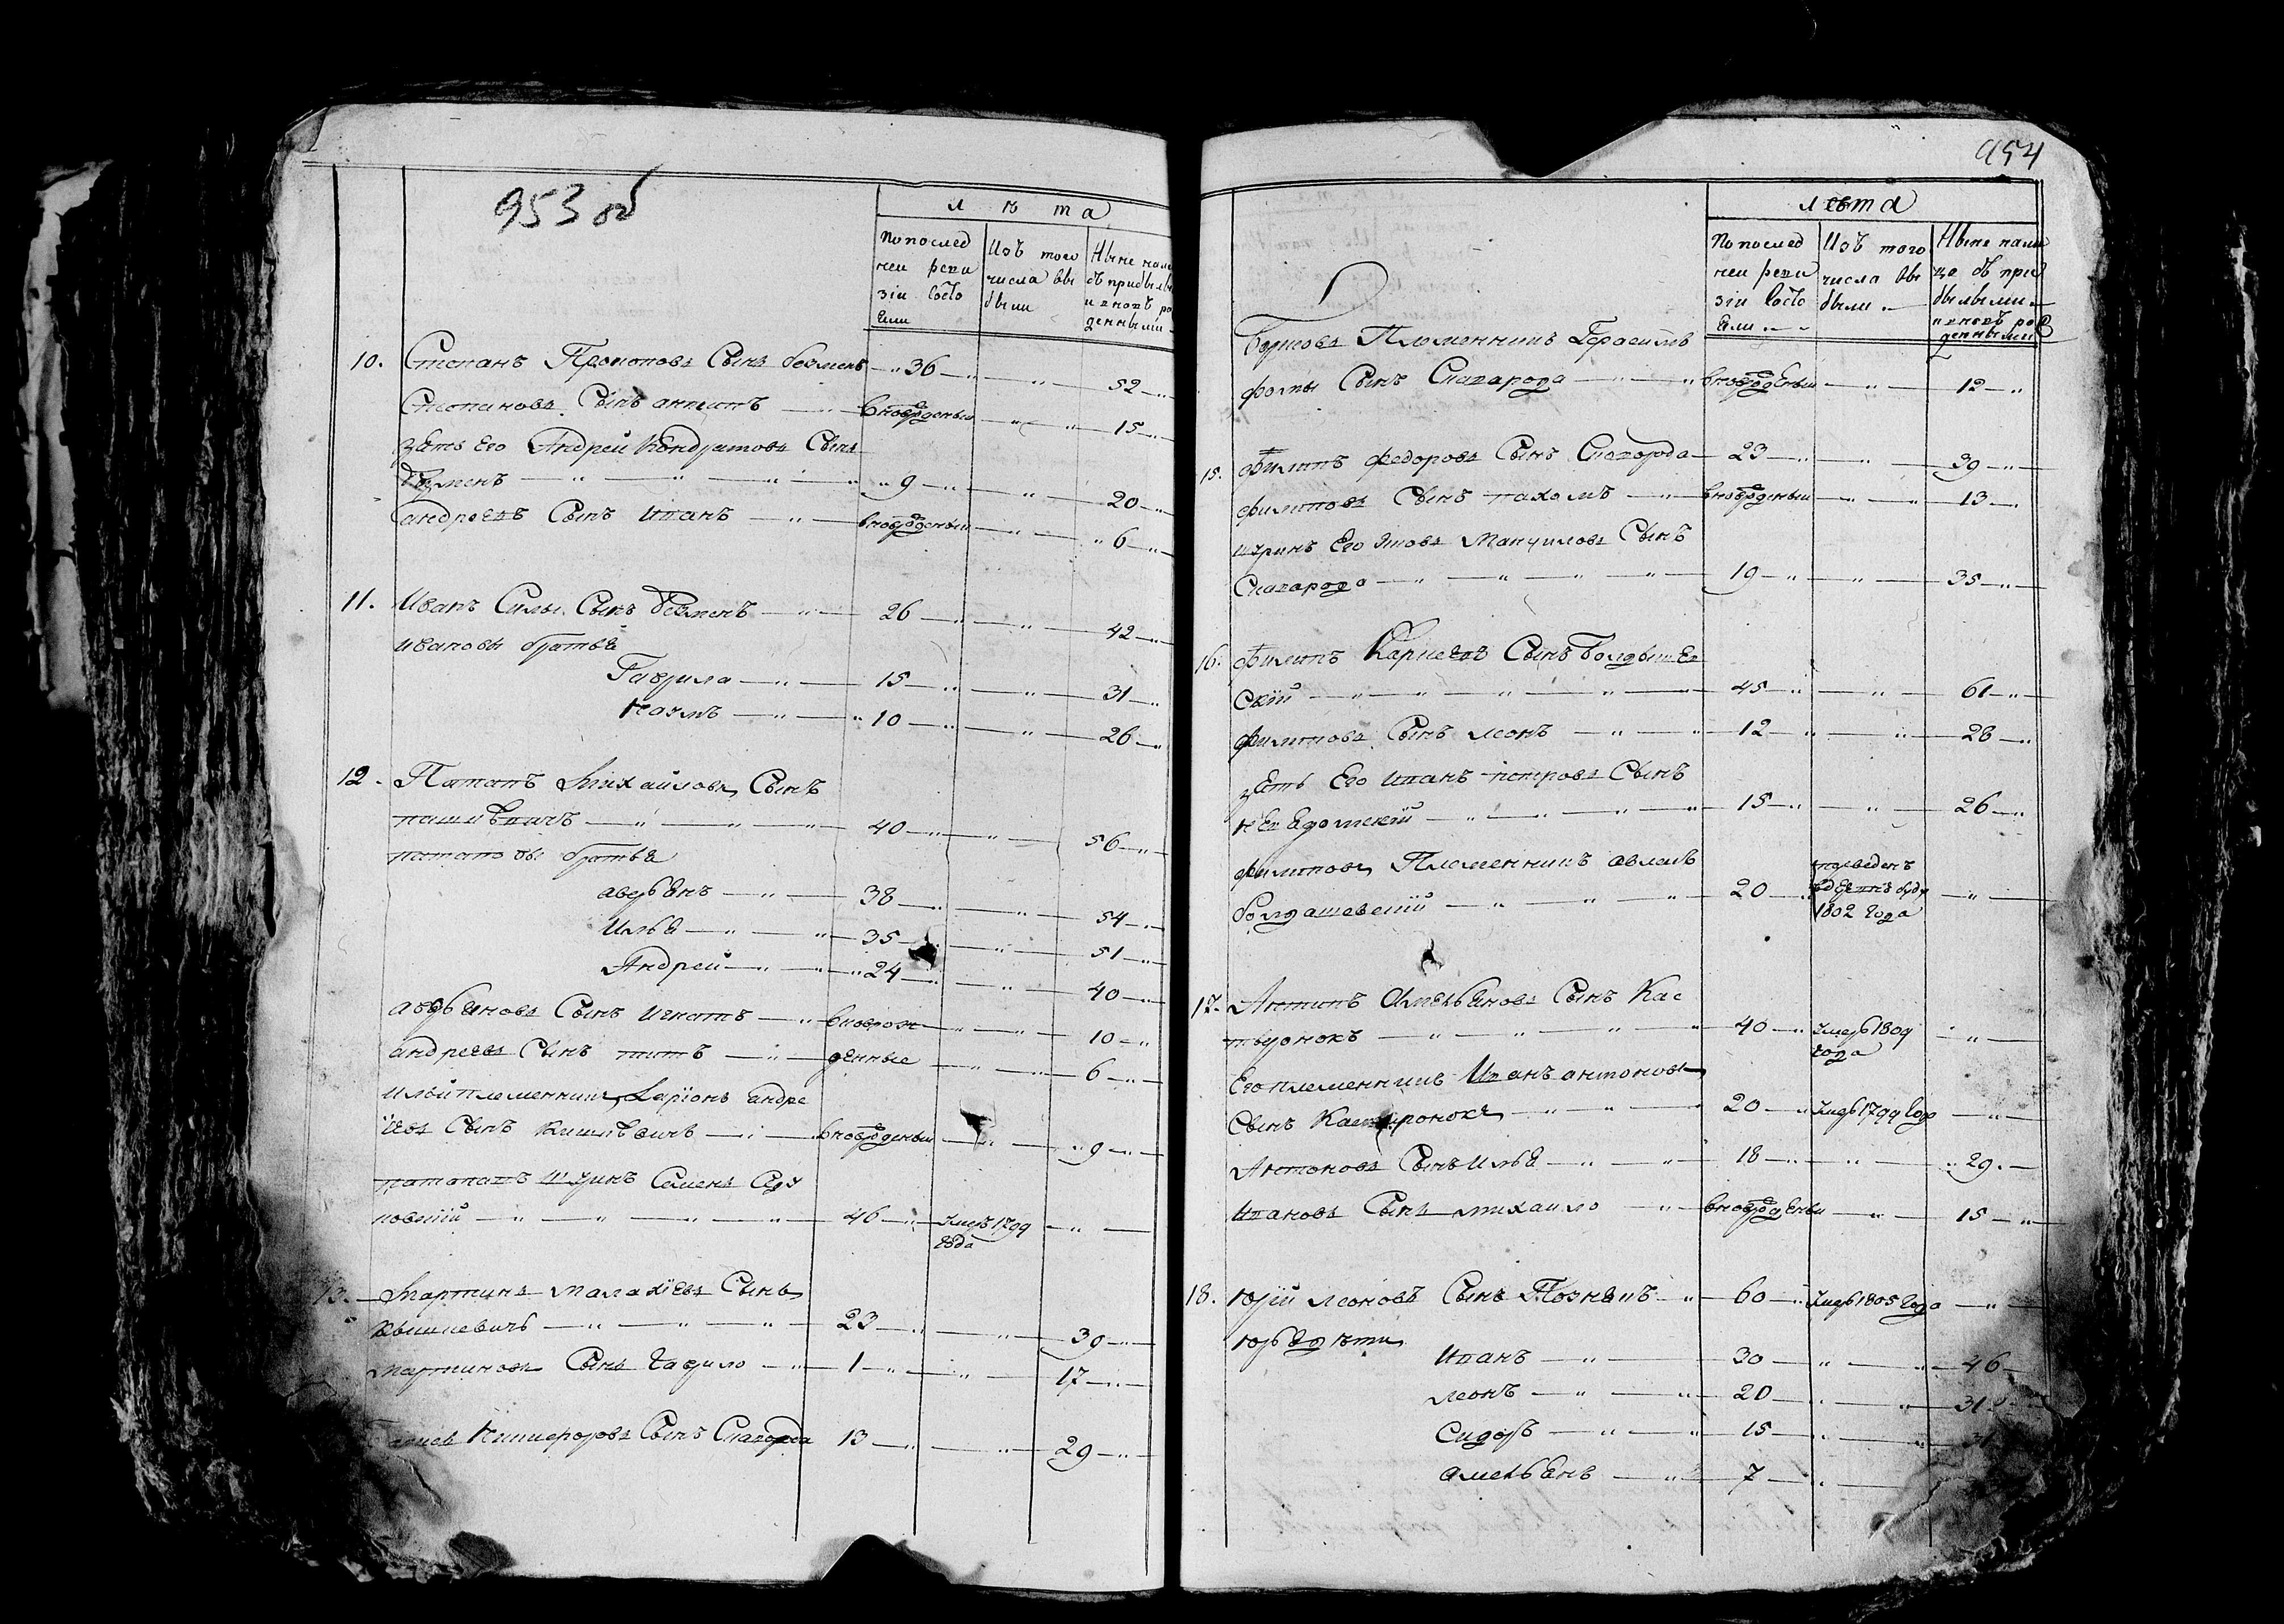 953 об
лѣта
По послед
ней реви
зіи Состо
Яли
Изъ того
числа вы
были
Ныне нали
съ прибылы
и вновь ро
денными
10. Степанъ Прокоповъ Сынъ безменъ 36 52
Степановъ Сынъ антипъ вноврожденный 15
зять Его Андрей Кондратовъ Сынъ
безменъ 9 20
андреевъ Сынъ Иванъ вноврожденный 6
11. Иванъ Силы Сынъ безменъ 26 42
ивановы братья
Гаврила 15 31
Наумъ 10 26
12. Патапъ Михайловъ Сынъ
40 56
патаповы братья
аверьянъ 38 54
Илья 35 51
Андрей 24 40
аверьяновъ Сынъ игнатъ вноврож 10
андреевъ Сынъ титъ денные 6
ильи племенникъ Ларіонъ андре
евъ Сынъ вноврожденный 9
патаповъ шуринъ Семенъ
46 Умеръ 1799
года
13. Мартинъ малахіевъ Сынъ
23 39
мартиновъ Сынъ гаврило 1 17
Никифоровъ Сынъ Скаварода 13 29
954
лѣта
По послед
ней реви
зіи Состо
Яли
Изъ того
числа вы
были
Ныне нали
це съ при
былыми
и вновь ро
денными
Борисовъ Племенникъ Герасимъ
фомы Сынъ Скаварода вноврожденный 12
15. Филипъ федоровъ Сынъ Скаварода 23 39
филиповъ Сынъ пахомъ вноврожденный 13
шуринъ Его Мануиловъ Сынъ
Скаварода 19 35
16. Филипъ Карнеевъ Сынъ Болдышев
скій 45 61
филиповъ Сынъ леонъ 12 28
зять Его Иванъ петровъ Сынъ
неведомскій 15 26
филиповъ Племенникъ
болдашевскій 20 1802 года
17. Антипъ Омельяновъ Сынъ Кас
40 Умеръ 1809
года
Его племенникъ Иванъ антоновъ
Сынъ 20 Умеръ 1799 года
Антоновъ Сынъ илья 18 29
ивановъ Сынъ михаило вноврожденный 15
18. юрій леоновъ Сынъ Познякъ 60 Умеръ 1805 года
юрья дети
Иванъ 30 46
леонъ 20 31
Сидоръ 15 31
Омельянъ 7